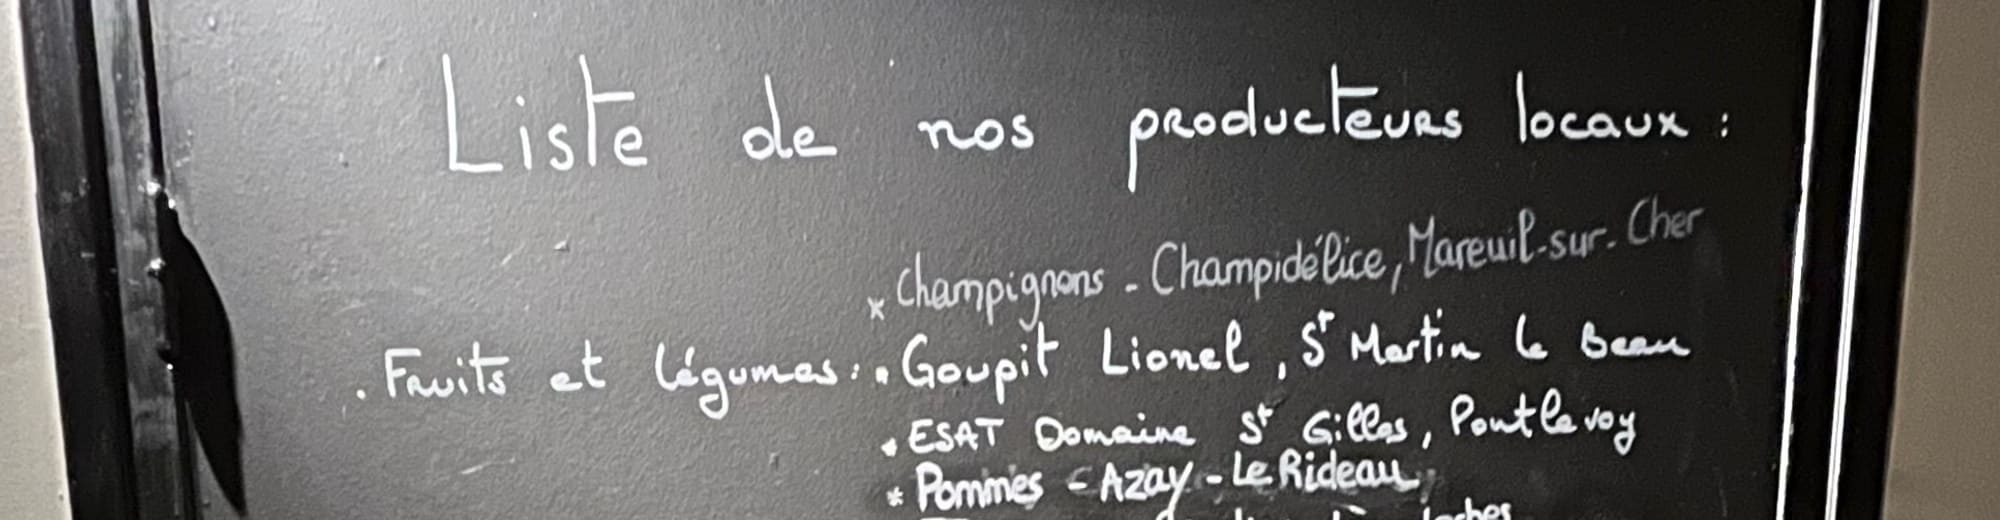 Liste de nos producteurs locaux :
* Champignons - Champidélice, Mareuil-sur-Cher
. Fruits et légumes : . Goupit Lionel, St Martin le Beau
. ESAT Domaine St Gilles, Pontlevoy
* Pommes - Azay-Le Rideau